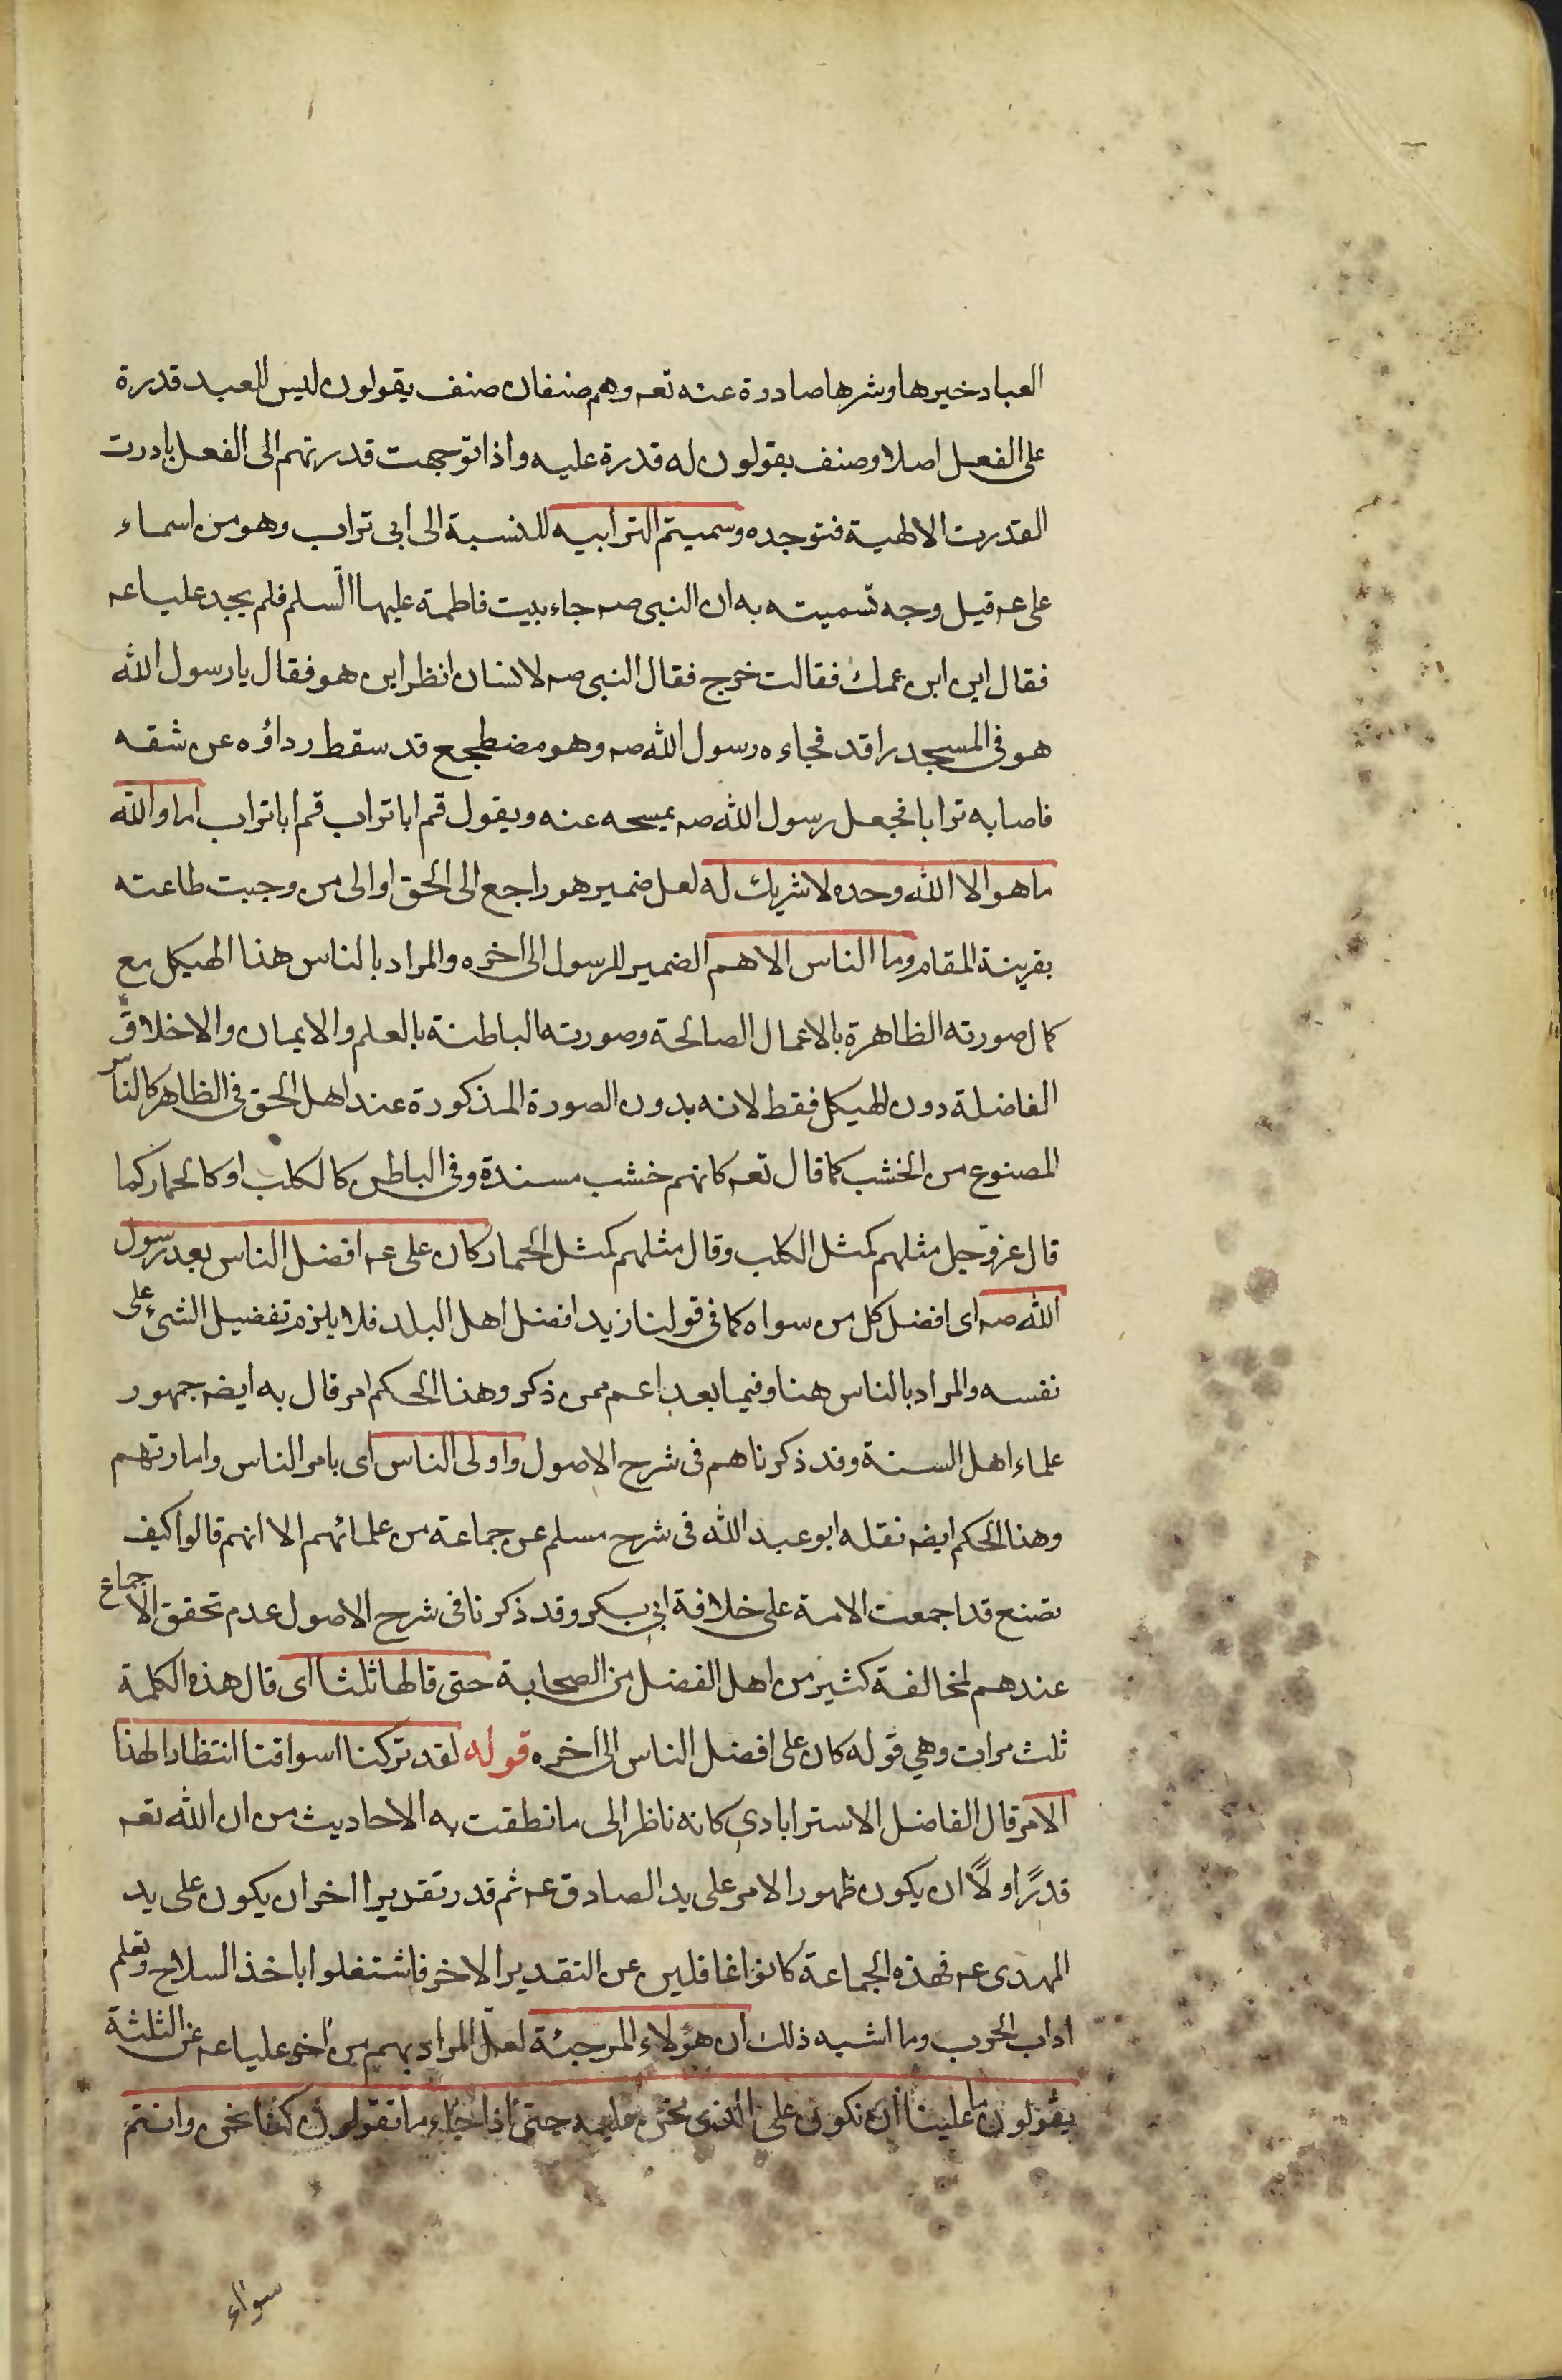 العباد خيرها وشرها صادرة عنه تعه وهم صنفان صنف يقولون ليس للعبد قدرة
على الفعل اصلا وصنف يقولون له قدرة عليه واذا توجهت قدرتهم الى الفعل بادرت
القدرت الالهية فتوجده وسميتم الترابيه للنسبة الى ابى تراب وهو من اسماء
على عه قيل وجه تسميته به ان النبى صه جاء بيت فاطمة عليها السلم فلم يجد عليا عه
فقال اين ابن عمك فقالت خرج فقال النبى صه لانسان انظر اين هو فقال يا رسول الله
هو فى المسجد راقد فجاءه رسول الله صه وهو مضطجع قد سقط رداؤه عن شقه
فاصابه ترابا فجعل رسول الله صه يمسحه عنه ويقول قم ابا تراب قم ابا تراب اما والله
ما هو الا الله وحده لا شريك له لعل ضمير هو راجع الى الحق او الى من وجبت طاعته
بقرينة المقام وما الناس الا هم الضمير للرسول الى اخره والمراد بالناس هذا الهيكل مع
كمال صورته الظاهرة بالاعمال الصالحة وصورته الباطنة بالعلم والايمان والاخلاق
الفاضلة دون الهيكل فقط لانه بدون الصورة المذكورة عند اهل الحق فى الظاهر كالناس
المصنوع من الخشب كما قال تعه كانهم خشب مسندة وفى الباطن كالكلب او كالحمار كما
قال عز وجل مثلهم كمثل الكلب وقال مثلهم كمثل الحمار كان على عه افضل الناس بعد رسول
الله صه اى افضل كل من سواه كما فى قولنا زيد افضل اهل البلد فلا يلزم تفضيل الشئ على
نفسه والمراد بالناس هنا وفيما بعد اعم ممن ذكر وهذا الحكم امر قال به ايضه جمهور
علماء اهل السنة وقد ذكرناهم فى شرح الاصول واولى الناس اى بامر الناس وامارتهم
وهذا الحكم ايضه نقله ابو عبد الله فى شرح مسلم عن جماعة من علمائهم الا انهم قالوا كيف
نصنع قد اجمعت الامة على خلافة ابى بكر وقد ذكرنا فى شرح الاصول عدم تحقق الاجماع
عندهم لمخالفة كثير من اهل الفضل من الصحابة حتى قالها ثلثا اى قال هذه الكلمة
ثلث مرات وهي قوله كان على افضل الناس الى اخره قوله لقد تركنا اسواقنا انتظارا لهذا
الامر قال الفاضل الاسترابادي كانه ناظر الى ما نطقت به الاحاديث من ان الله تعه
قدر اولا ان يكون ظهور الامر على يد الصادق عه ثم قدر تقديرا اخر ان يكون على يد
المهدى عه فهذه الجماعة كانوا غافلين عن التقدير الاخر فاشتغلوا باخذ السلاح وتعلم
اداب الحرب وما اشبه ذلك ان هؤلاء المرجئة لعل المراد بهم من اخر عليا عه عن الثلثة
يقولون ما علينا ان نكون على الذى نحن عليه حتى اذا جاء ما تقولون كنا نحن وانتم
سواء